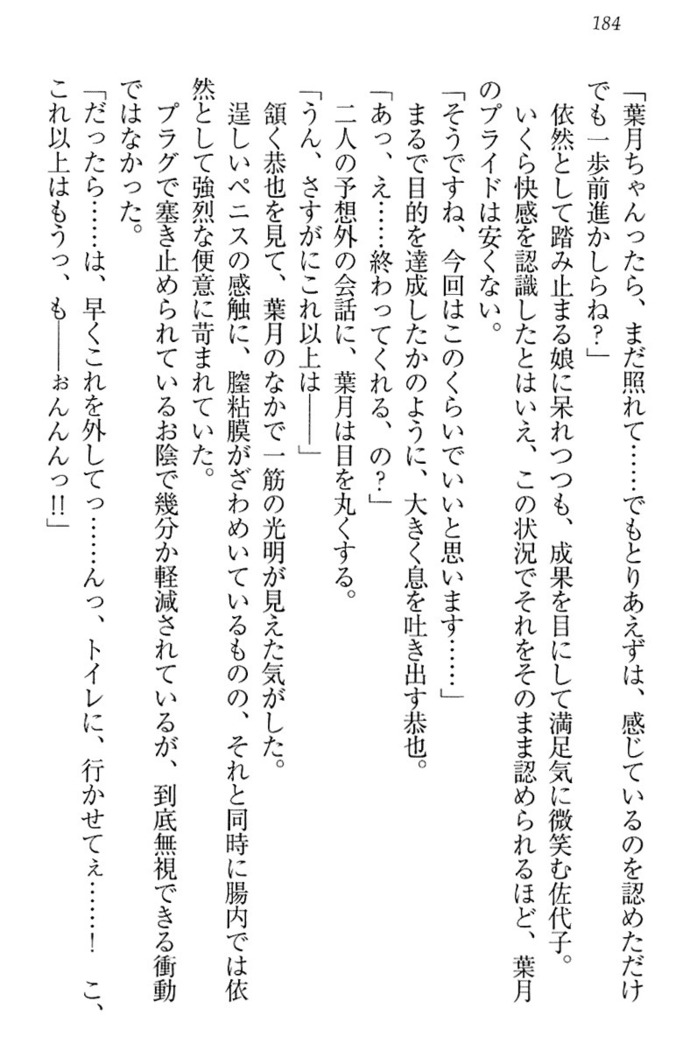 184
「葉月ちゃんったら、まだ照れて……でもとりあえずは、感じているのを認めただけ
でも一歩前進かしらね？」
依然として踏み止まる娘に呆れつつも、成果を目にして満足気に微笑む佐代子。
いくら快感を認識したとはいえ、この状況でそれをそのまま認められるほど、葉月
のプライドは安くない。
「そうですね、今回はこのくらいでいいと思います……」
まるで目的を達成したかのように、大きく息を吐き出す恭也。
「あっ、え……終わってくれる、の？」
二人の予想外の会話に、葉月は目を丸くする。
「うん、さすがにこれ以上は――」
頷く恭也を見て、葉月のなかで一筋の光明が見えた気がした。
逞しいペニスの感触に、膣粘膜がざわめいているものの、それと同時に腸内では依
然として強烈な便意に苛まれていた。
プラグで塞き止められているお陰で幾分か軽減されているが、到底無視できる衝動
ではなかった。
「だったら……は、早くこれを外してっ……んっ、トイレに、行かせてぇ……！　こ、
これ以上はもうっ、も――ぉんんんっ!!」